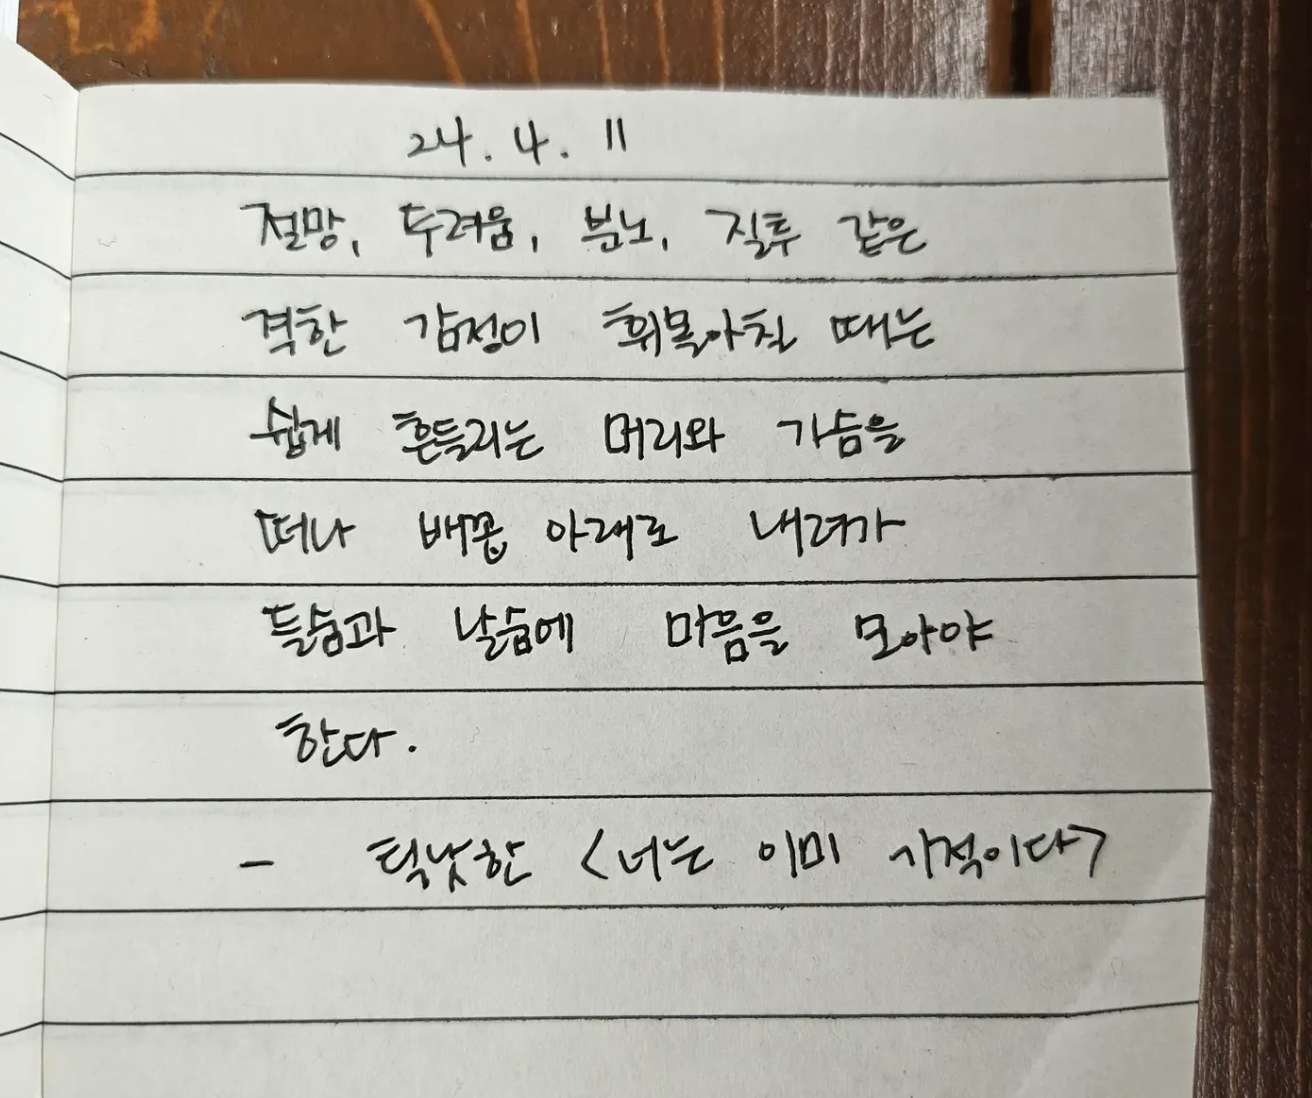 24. 4. 11
절망, 두려움, 분노, 질투 같은
격한 감정이 휘몰아칠 때는
쉽게 흔들리는 머리와 가슴을
떠나 배꼽 아래로 내려가
들숨과 날숨에 마음을 모아야
한다.
- 틱낫한 <너는 이미 기적이다>